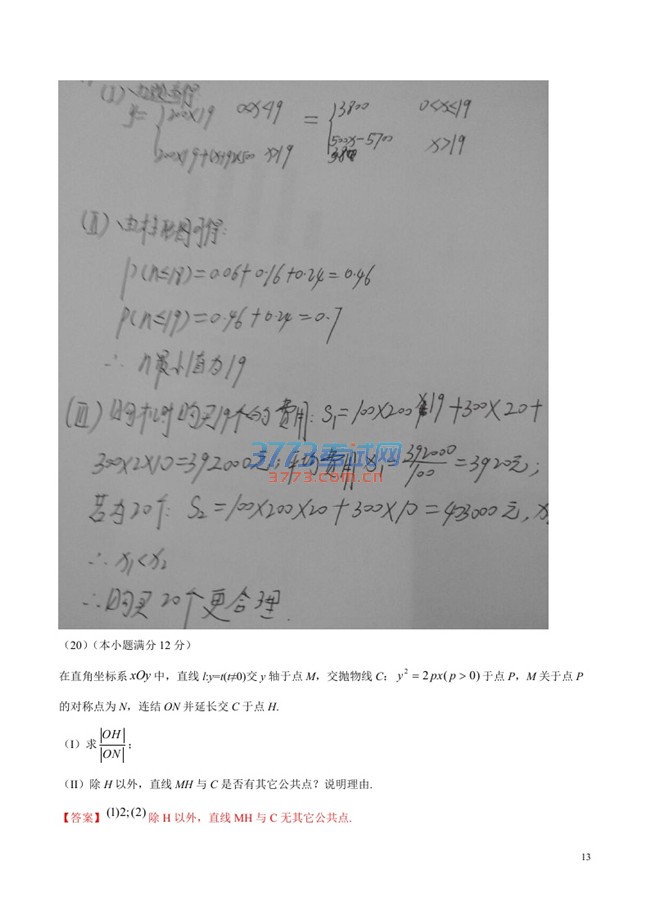 (Ⅰ)、由题意得:
y= {200×19 0<x≤19 = {3800 0<x≤19
200×19+(x-19)×500 x>19 500x-5700 x>19
(Ⅱ)、由柱形图可得:
P(n≤18)=0.06+0.16+0.24=0.46
P(n≤19)=0.46+0.24=0.7
∴ n最小值为19
(Ⅲ) 购机时购买19个的费用: S₁=100×200×19+300×20+
300×2×10=392000元; 平均费用 x₁=392000/100=3920元;
若为20个: S₂=100×200×20+300×10=403000元,
∴ x₁<x₂
∴购买20个更合理.
3773考试网
3773.com.cn
(20)(本小题满分 12 分)
在直角坐标系 xOy 中,直线 l:y=t(t≠0)交 y 轴于点 M,交抛物线 C: y² = 2px(p > 0) 于点 P,M 关于点 P
的对称点为 N,连结 ON 并延长交 C 于点 H.
(I)求 |OH|/|ON|;
(II)除 H 以外,直线 MH 与 C 是否有其它公共点?说明理由.
【答案】(1)2;(2) 除 H 以外,直线 MH 与 C 无其它公共点.
13